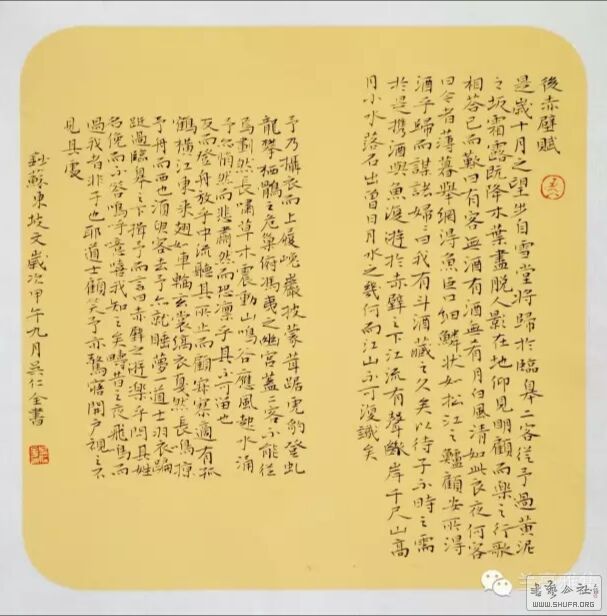 後赤壁賦
是歲十月之望步自雪堂將歸於臨皋二客從予過黃泥
之坂霜露既降木葉盡脫人影在地仰見明顧而樂之行歌
相答已而歎曰有客無酒有酒無肴月白風清如此良夜何客
曰今者薄暮舉網得魚巨口細鱗狀如松江之鱸顧安所得
酒乎歸而謀諸婦婦曰我有斗酒藏之久矣以待子不時之需
於是攜酒與魚復遊於赤壁之下江流有聲斷岸千尺山高
月小水落石出曾日月水之幾何而江山不可復識矣
予乃攝衣而上履巉巖披蒙茸踞虎豹登虬
龍攀栖鶻之危巢俯馮夷之幽宮蓋二客不能從
焉劃然長嘯草木震動山鳴谷應風起水涌
予亦悄然而悲肅然而恐凜乎其不可留也
反而登舟放乎中流聽其所止而顧寂寥適有孤
鶴橫江東來翅如車輪玄裳縞衣戛然長鳴掠
予舟而西也須臾客去予亦就睡夢一道士羽衣蹁
躚過臨皋之下揖予而言曰赤壁之遊樂乎問其姓
名俛而不答嗚呼噫嘻我知之矣疇昔之夜飛鳴而
過我者非子也耶道士顧笑予亦驚寤開戶視之不
見其處
錄蘇東坡文歲次甲午九月吳仁全書
書藝公社
WWW.SHUFA.ORG